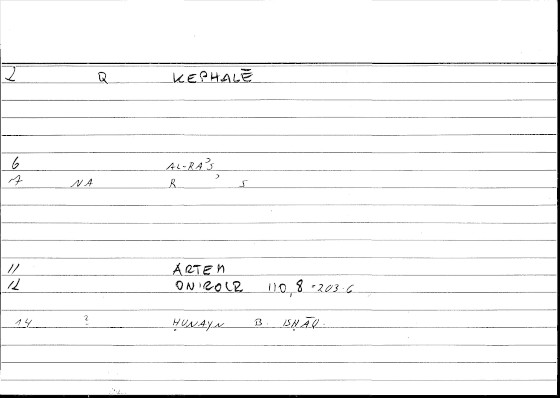 2 Q KEPHALĒ
6 AL-RAʾS
7 NA R ʾ S
11 ARTEM
12 ONIROCR 110,8 = 203.6
14 ? ḤUNAYN B. ISḤĀQ.